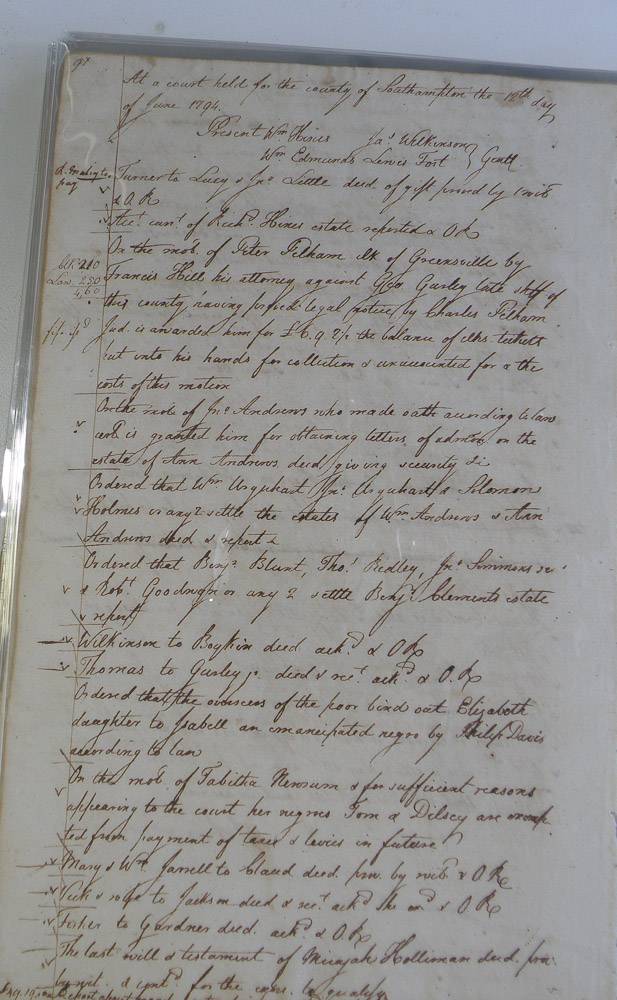 At a court held for the county of Southampton the 12th day
of June 1794.
Present Wm Hines Jas Wilkinson
Wm Edmunds Lewis Fort } Gentl
Turner to Lucy & Jno Little deed of gift proved by 1 wit
& O R
Acct curt of Richd Hines estate reported & O R
On the mo. of Peter Pelham clk of Greensville by
Francis Hill his attorney against Geo Gurley late shff of
this county having provd legal notice by Charles Pelham
Jud. is awarded him for £ 6.9.2½ the balance of clks tickets
put into his hands for collection & unaccounted for & the
costs of this motion
On the mo of Jno Andrews who made oath acording to law
cert. is granted him for obtaining letters of admon on the
estate of Ann Andrews decd giving security &c
Ordered that Wm Urquhart Jno Urquhart & Solomon
Holmes or any 2 settle the estates of Wm Andrews & Ann
Andrews decd & report &
Ordered that Benja Blunt, Thos Ridley, Jno Simmons
& Robt Goodwyn or any 2 settle Benja Clements estate
& report
Wilkinson to Boykin deed ackd & O R
Thomas to Gurley deed & rect ackd & O. R
Ordered that the overseers of the poor bind out Elizabeth
daughter to Isabell an emancipated negro by Philip Davis
acording to law
On the mo. of Tabitha Newsum & for sufficient reasons
appearing to the court her negroes Tom & Dilsey are exemp
ted from payment of taxes & levies in future
Mary & Wm Jarrell to Claud deed prov. by wit & O R
Vick & wife to Jackson deed & rect ackd she exd & O R
Foster to Gardner deed ackd & O R
The last will & testament of Micajah Holliman decd pro.
by wit. & contd for the exrs to qualify